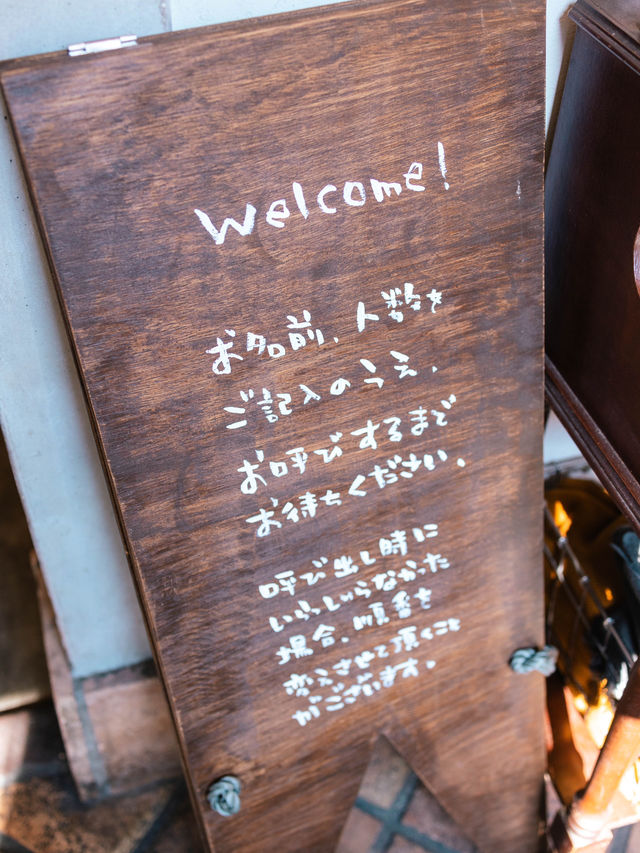 Welcome!
お名前、人数を
ご記入のうえ、
お呼びするまで
お待ちください。
呼び出し時に
いらっしゃらなかった
場合、順番を
変えさせて頂くこと
がございます。